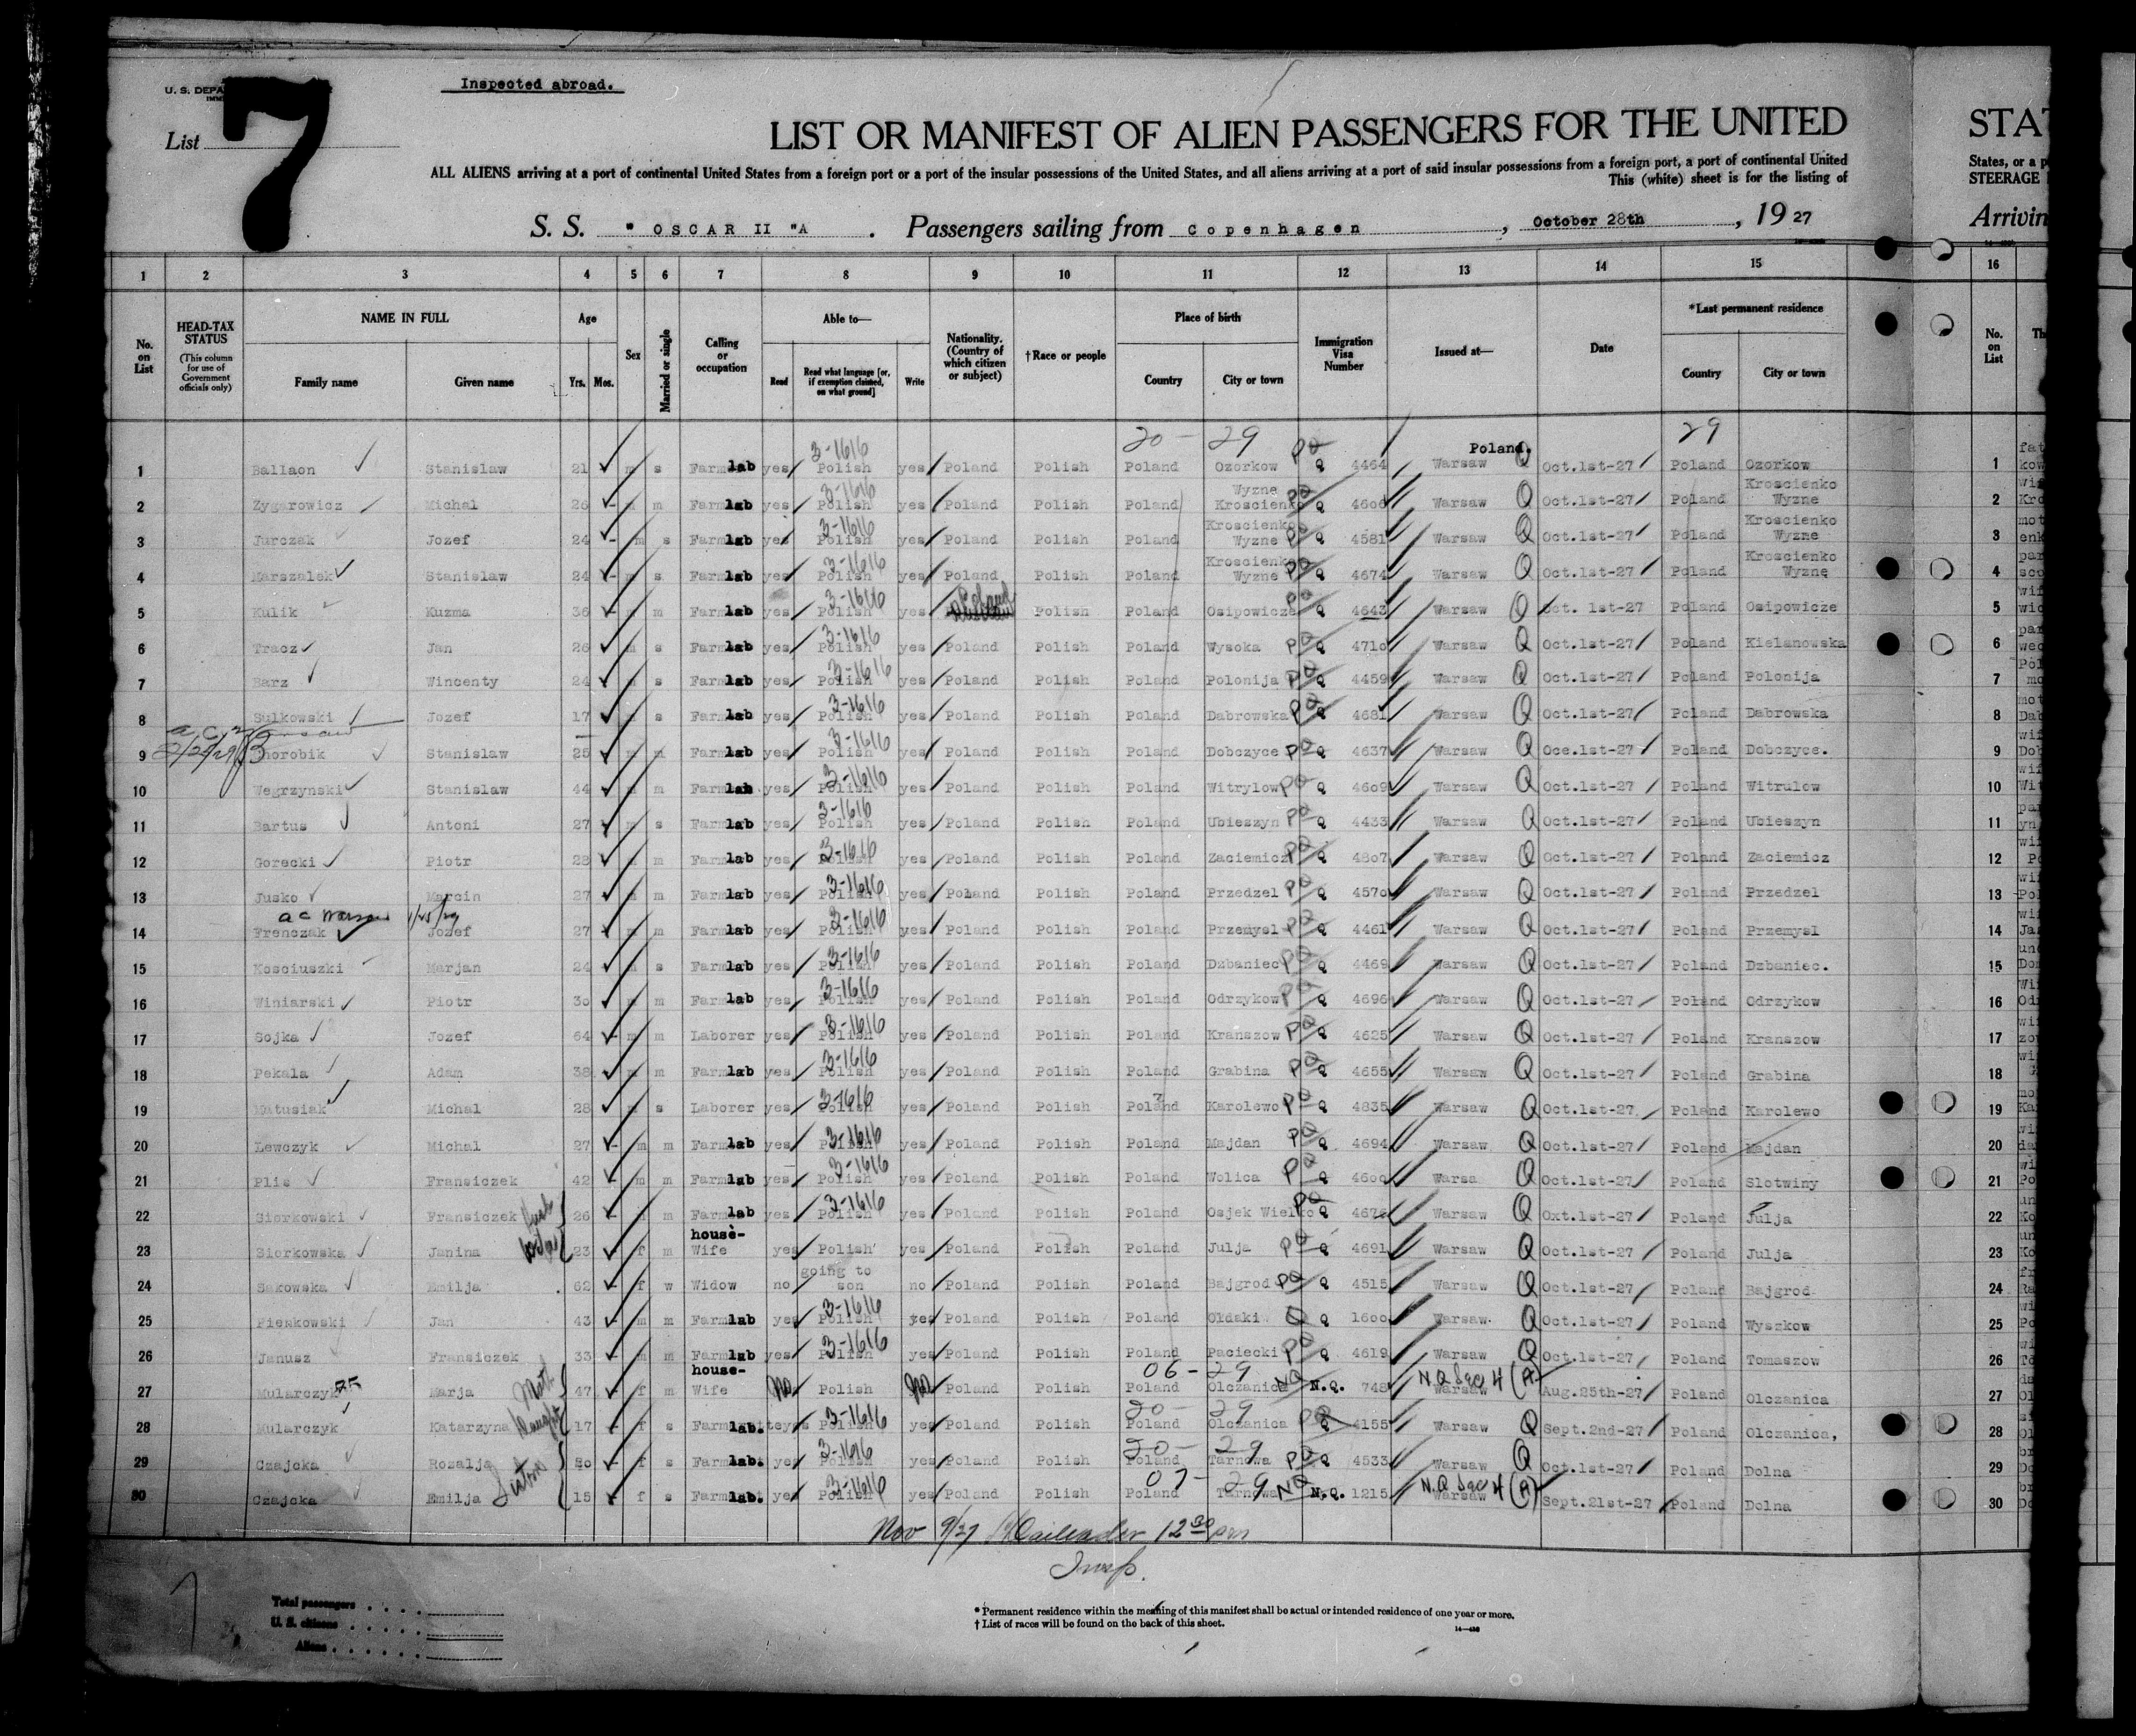 U. S. DEPA
IMM
Inspected abroad.
List 7
LIST OR MANIFEST OF ALIEN PASSENGERS FOR THE UNITED
STAT
ALL ALIENS arriving at a port of continental United States from a foreign port or a port of the insular possessions of the United States, and all aliens arriving at a port of said insular possessions from a foreign port, a port of continental United
States, or a p
This (white) sheet is for the listing of
STEERAGE
S. S. " OSCAR II "A . Passengers sailing from Copenhagen , October 28th , 19 27
Arrivin
1 2 3 4 5 6 7 8 9 10 11 12 13 14 15 16
No. on List
HEAD-TAX STATUS (This column for use of Government officials only)
NAME IN FULL Family name Given name
Age Yrs. Mos.
Sex
Married or single
Calling or occupation
Able to— Read Read what language [or, if exemption claimed, on what ground] Write
Nationality. (Country of which citizen or subject)
†Race or people
Place of birth Country City or town
Immigration Visa Number
Issued at—
Date
*Last permanent residence Country City or town
No. on List
20 - 29 29
Poland.
1 Ballaon Stanislaw 21 m s Farm lab yes 3-1616 Polish yes Poland Polish Poland Ozorkow PQ Q 4464 Warsaw Q Oct.1st-27 Poland Ozorkow 1
2 Zygarowicz Michal 26 m m Farm lab yes 3-1616 Polish yes Poland Polish Poland Wyzne Kroscienko PQ Q 4606 Warsaw Q Oct.1st-27 Poland Kroscienko Wyzne 2
3 Jurczak Jozef 24 - m s Farm lab yes 3-1616 Polish yes Poland Polish Poland Kroscienko Wyzne PQ Q 4581 Warsaw Q Oct.1st-27 Poland Kroscienko Wyzne 3
4 Marszalek Stanislaw 24 - m s Farm lab yes 3-1616 Polish yes Poland Polish Poland Kroscienko Wyzne PQ Q 4674 Warsaw Q Oct.1st-27 Poland Kroscienko Wyzne 4
5 Kulik Kuzma 36 m m Farm lab yes 3-1616 Polish yes Poland Polish Poland Osipowicze PQ Q 4643 Warsaw Q Oct. 1st-27 Poland Osipowicze 5
6 Tracz Jan 26 m s Farm lab yes 3-1616 Polish yes Poland Polish Poland Wysoka PQ Q 4710 Warsaw Q Oct.1st-27 Poland Kielanowska 6
7 Barz Wincenty 24 m s Farm lab yes 3-1616 Polish yes Poland Polish Poland Polonija PQ Q 4459 Warsaw Q Oct.1st-27 Poland Polonija 7
8 Sulkowski Jozef 17 m s Farm lab yes 3-1616 Polish yes Poland Polish Poland Dabrowska PQ Q 4681 Warsaw Q Oct.1st-27 Poland Dabrowska 8
9 Chorobik Stanislaw 25 m m Farm lab yes 3-1616 Polish yes Poland Polish Poland Dobczyce PQ Q 4637 Warsaw Q Oce.1st-27 Poland Dobczyce. 9
10 Wegrzynski Stanislaw 44 m m Farm lab yes 3-1616 Polish yes Poland Polish Poland Witrylow PQ Q 4609 Warsaw Q Oct.1st-27 Poland Witrulow 10
11 Bartus Antoni 27 m s Farm lab yes 3-1616 Polish yes Poland Polish Poland Ubieszyn PQ Q 4433 Warsaw Q Oct.1st-27 Poland Ubieszyn 11
12 Gorecki Piotr 28 m m Farm lab yes 3-1616 Polish yes Poland Polish Poland Zaciemicz PQ Q 4807 Warsaw Q Oct.1st-27 Poland Zaciemicz 12
13 Jusko Marcin 27 m m Farm lab yes 3-1616 Polish yes Poland Polish Poland Przedzel PQ Q 4570 Warsaw Q Oct.1st-27 Poland Przedzel 13
a c Warsaw 1/25/29
14 Frenczak Jozef 27 m m Farm lab yes 3-1616 Polish yes Poland Polish Poland Przemysl PQ Q 4461 Warsaw Q Oct.1st-27 Poland Przemysl 14
15 Kosciuszki Marjan 24 m s Farm lab yes 3-1616 Polish yes Poland Polish Poland Dzbaniec PQ Q 4469 Warsaw Q Oct.1st-27 Poland Dzbaniec. 15
16 Winiarski Piotr 30 m m Farm lab yes 3-1616 Polish yes Poland Polish Poland Odrzykow PQ Q 4696 Warsaw Q Oct.1st-27 Poland Odrzykow 16
17 Sojka Jozef 64 m m Laborer yes 3-1616 Polish yes Poland Polish Poland Kranszow PQ Q 4625 Warsaw Q Oct.1st-27 Poland Kranszow 17
18 Pekala Adam 38 m m Farm lab yes 3-1616 Polish yes Poland Polish Poland Grabina PQ Q 4655 Warsaw Q Oct.1st-27 Poland Grabina 18
19 Matusiak Michal 28 m s Laborer yes 3-1616 Polish yes Poland Polish Poland Karolewo PQ Q 4835 Warsaw Q Oct.1st-27 Poland Karolewo 19
20 Lewczyk Michal 27 - m m Farm lab yes 3-1616 Polish yes Poland Polish Poland Majdan PQ Q 4694 Warsaw Q Oct.1st-27 Poland Majdan 20
21 Plis Fransiczek 42 m m Farm lab yes 3-1616 Polish yes Poland Polish Poland Wolica PQ Q 4600 Warsa Q Oct.1st-27 Poland Slotwiny 21
22 Siorkowski Fransiczek 26 m m Farm lab yes 3-1616 Polish yes Poland Polish Poland Osjek Wielko PQ Q 4676 Warsaw Q Oxt.1st-27 Poland Julja 22
23 Siorkowska Janina 23 f m house- Wife yes Polish yes Poland Polish Poland Julja PQ Q 4691 Warsaw Q Oct.1st-27 Poland Julja 23
24 Sakowska Emilja 62 - f w Widow no going to son no Poland Polish Poland Bajgrod PQ Q 4515 Warsaw Q Oct.1st-27 Poland Bajgrod 24
25 Pienkowski Jan 43 - m m Farm lab yes 3-1616 Polish yes Poland Polish Poland Oldaki Q Q 1600 Warsaw. Q Oct.1st-27 Poland Wyszkow 25
26 Janusz Fransiczek 33 - m m Farm lab yes 3-1616 Polish yes Poland Polish Poland Paciecki PQ Q 4619 Warsaw Q Oct.1st-27 Poland Tomaszow 26
06 - 29
27 Mularczyk Marja Moth 47 - f m house- Wife No Polish No Poland Polish Poland Olczanica NQ N.Q. 748 N.Q Sec 4 (A) Warsaw Aug.25th-27 Poland Olczanica 27
20 - 29
28 Mularczyk Katarzyna Daught 17 - f s Farm lab. yes 3-1616 Polish yes Poland Polish Poland Olczanica PQ Q 4155 Warsaw Q Sept.2nd-27 Poland Olczanica, 28
20 - 29
29 Czajcka Rozalja 20 - f s Farm lab. yes 3-1616 Polish yes Poland Polish Poland Tarnowa PQ Q 4533 Warsaw Q Oct.1st-27 Poland Dolna 29
07 - 29
30 Czajcka Emilja 15 f s Farm lab. yes 3-1616 Polish yes Poland Polish Poland Tarnowa NQ N.Q. 1215 N.Q Sec 4 (A) Warsaw Sept.21st-27 Poland Dolna 30
Nov 9/27 12 30 pm
Insp.
Total passengers . . . .
U. S. citizens . . . . .
Aliens . . . . . .
* Permanent residence within the meaning of this manifest shall be actual or intended residence of one year or more.
† List of races will be found on the back of this sheet.